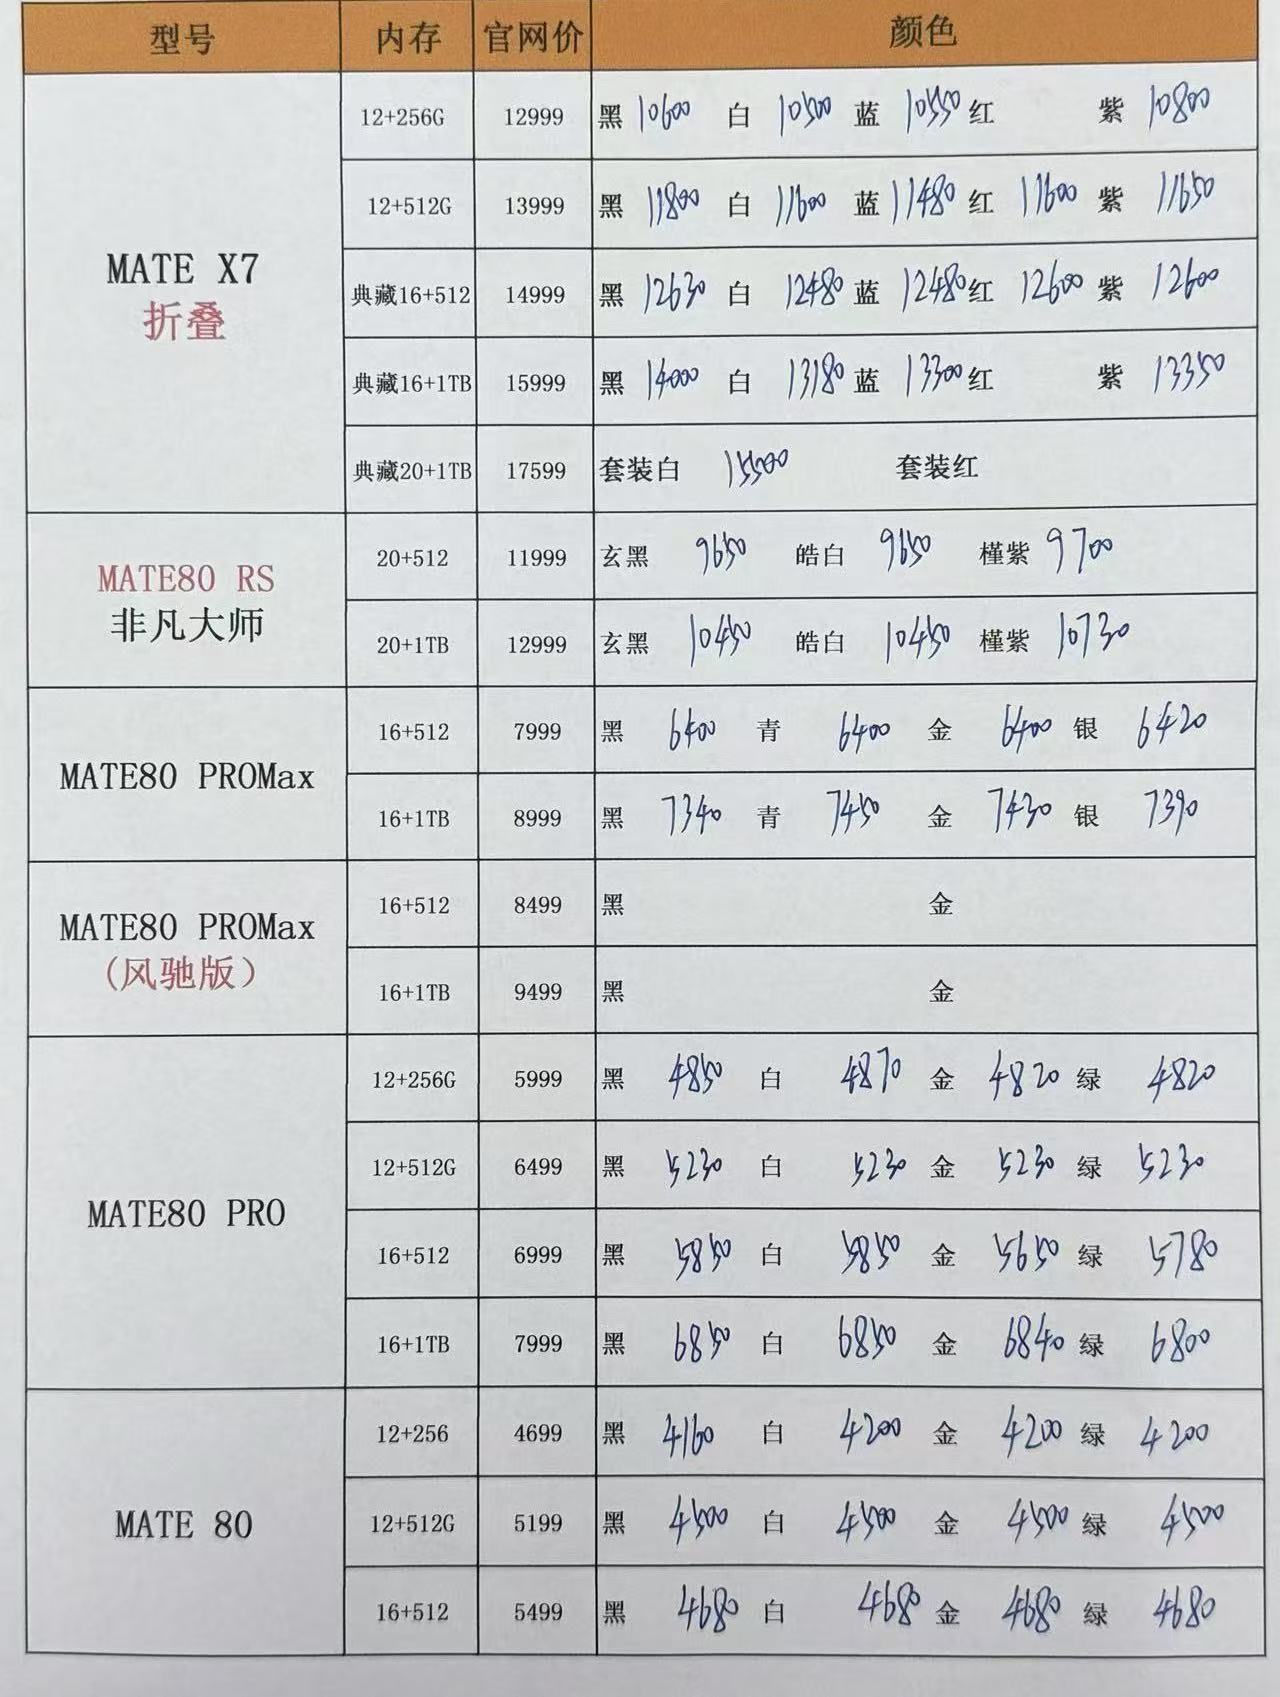 型号 内存 官网价 颜色
MATE X7
折叠
12+256G 12999 黑 10600 白 10500 蓝 10550 红 紫 10800
12+512G 13999 黑 11800 白 11600 蓝 11480 红 11600 紫 11650
典藏16+512 14999 黑 12630 白 12480 蓝 12480 红 12600 紫 12600
典藏16+1TB 15999 黑 14000 白 13180 蓝 13300 红 紫 13350
典藏20+1TB 17599 套装白 15500 套装红
MATE80 RS
非凡大师
20+512 11999 玄黑 9650 皓白 9650 槿紫 9700
20+1TB 12999 玄黑 10450 皓白 10450 槿紫 10730
MATE80 PROMax
16+512 7999 黑 6400 青 6400 金 6400 银 6420
16+1TB 8999 黑 7340 青 7450 金 7430 银 7390
MATE80 PROMax
(风驰版）
16+512 8499 黑 金
16+1TB 9499 黑 金
MATE80 PRO
12+256G 5999 黑 4850 白 4870 金 4820 绿 4820
12+512G 6499 黑 5230 白 5230 金 5230 绿 5230
16+512 6999 黑 5850 白 5850 金 5650 绿 5780
16+1TB 7999 黑 6850 白 6850 金 6840 绿 6800
MATE 80
12+256 4699 黑 4160 白 4200 金 4200 绿 4200
12+512G 5199 黑 4500 白 4500 金 4500 绿 4500
16+512 5499 黑 4680 白 4680 金 4680 绿 4680